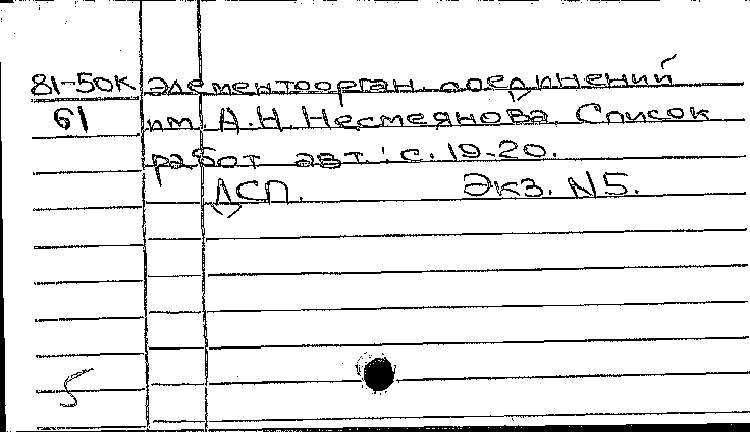 81-50к элементоорган. соединений
61 им. А.Н. Несмеянова. Список
работ авт.: с. 19-20.
ДСП. Экз. N5.
5